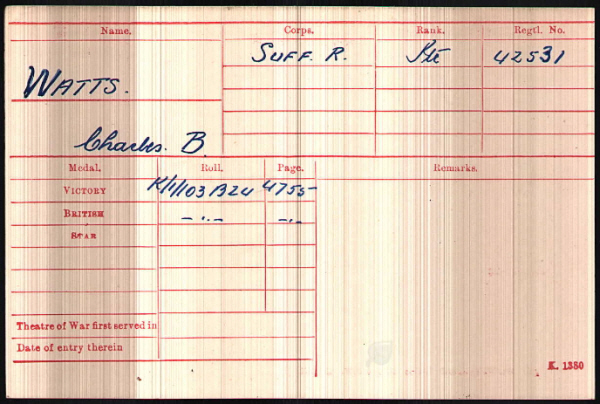 Name. Corps. Rank. Regtl. No.
WATTS. SUFF. R. Pte 42531
Charles. B.
Medal. Roll. Page. Remarks.
VICTORY K/1/103 B24 4755
BRITISH —"— —"—
STAR
Theatre of War first served in
Date of entry therein
K. 1380